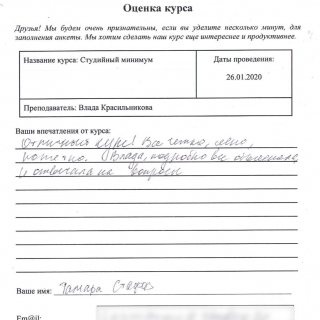 Оценка курса
Друзья! Мы будем очень признательны, если вы уделите несколько минут, для
заполнения анкеты. Мы хотим сделать наш курс еще интереснее и продуктивнее.
Название курса: Студийный минимум
Даты проведения:
26.01.2020
Преподаватель: Влада Красильникова
Ваши впечатления от курса:
Отличный курс! Все четко, ясно,
понятно. Влада, подробно все объясняла
и отвечала на вопросы
Ваше имя: Тамара
Em@il: